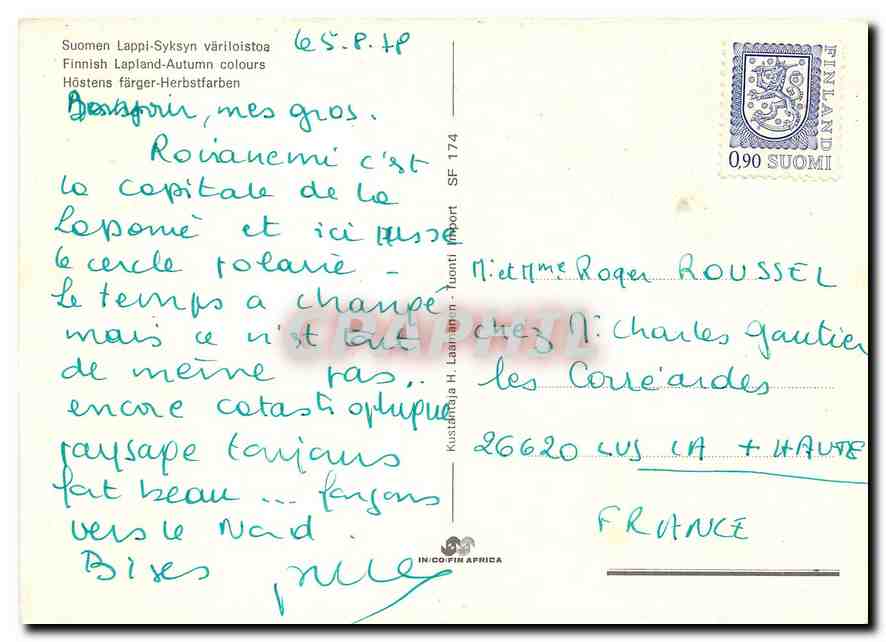 Suomen Lappi-Syksyn väriloistoa
Finnish Lapland-Autumn colours
Höstens färger-Herbstfarben
le 5.8.78
Bonsoir, mes gros.
Rovanemi c'est
la capitale de la
Laponie et ici passe
le cercle polaire -
Le temps a changé
mais ce n'est tout
de même pas
encore catastrophique
paysage toujours
fort beau ... fonçons
vers le Nord.
Bises
Kustantaja H. Laamanen - Tuonti Import SF 174
CPAPHIL
IN/CO/FIN AFRICA
FINLAND
0,90 SUOMI
Mr et Mme Roger ROUSSEL
chez Mr Charles Gautier
les Corréardes
26620 LUS LA + HAUTE
FRANCE